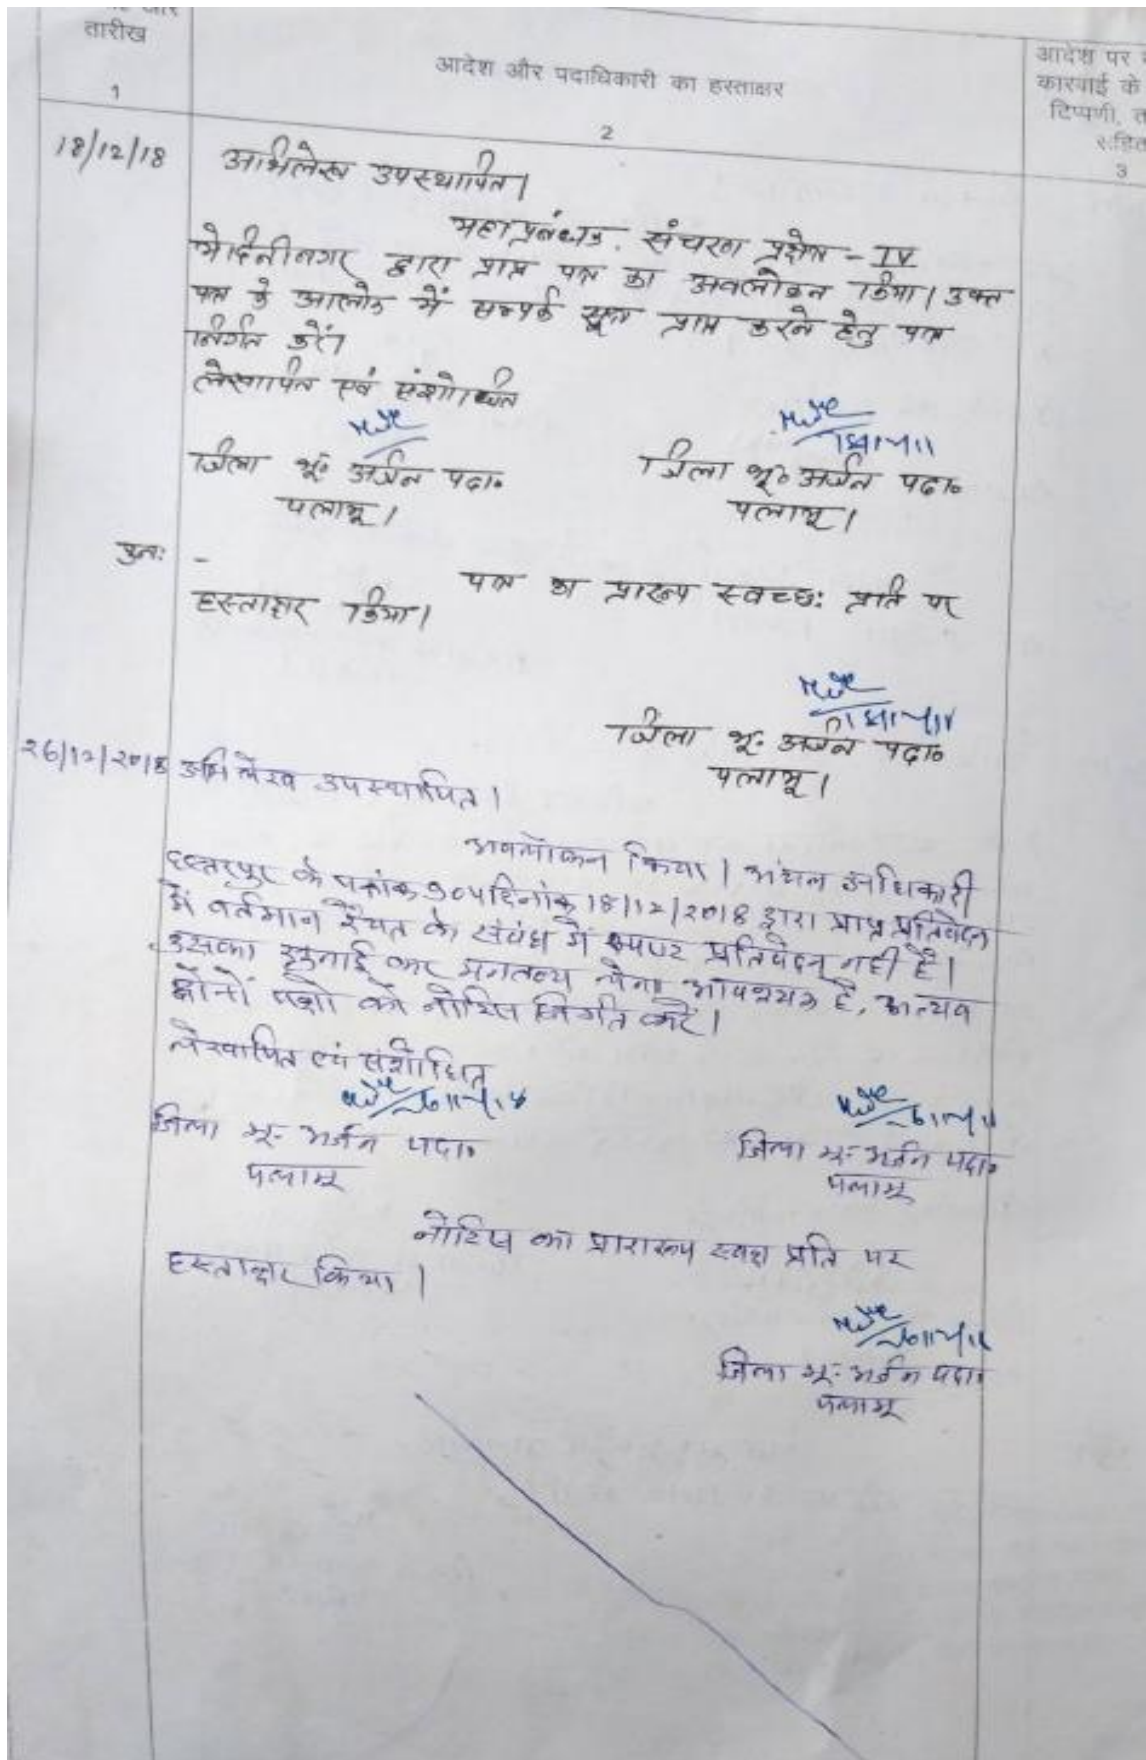 तारीख
1
आदेश और पदाधिकारी का हस्ताक्षर
2
आदेश पर
कारवाई के
टिप्पणी,
सहित
3
18/12/18 अभिलेख उपस्थापित।
महाप्रबंधक. संचरण प्रक्षेत्र - IV
मेदिनीनगर द्वारा प्राप्त पत्र का अवलोकन किया। उक्त
पत्र के आलोक में सम्पर्क सूत्र प्राप्त करने हेतु पत्र
निर्गत करें।
लेखापित एवं संशोधित
जिला भू० अर्जन पदा०
पलामू।
जिला भू० अर्जन पदा०
पलामू।
पुनः -
पत्र का प्रारूप स्वच्छः प्रति पर
हस्ताक्षर किया।
जिला भू० अर्जन पदा०
पलामू।
26/12/2018 अभिलेख उपस्थापित।
अवलोकन किया। अंचल अधिकारी
छत्तरपुर के पत्रांक दिनांक 18/12/2018 द्वारा प्राप्त प्रतिवेदन
में वर्तमान रैयत के संबंध में स्पष्ट प्रतिवेदन नहीं है।
उसका सुनवाई कर मन्तव्य लेना आवश्यक है, अतएव
दोनों पक्षो को नोटिस निर्गत करें।
लेखापित एवं संशोधित
जिला भू० अर्जन पदा०
पलामू
जिला भू० अर्जन पदा०
पलामू
नोटिस का प्रारारूप स्वच्छ प्रति पर
हस्ताक्षर किया।
जिला भू० अर्जन पदा०
पलामू